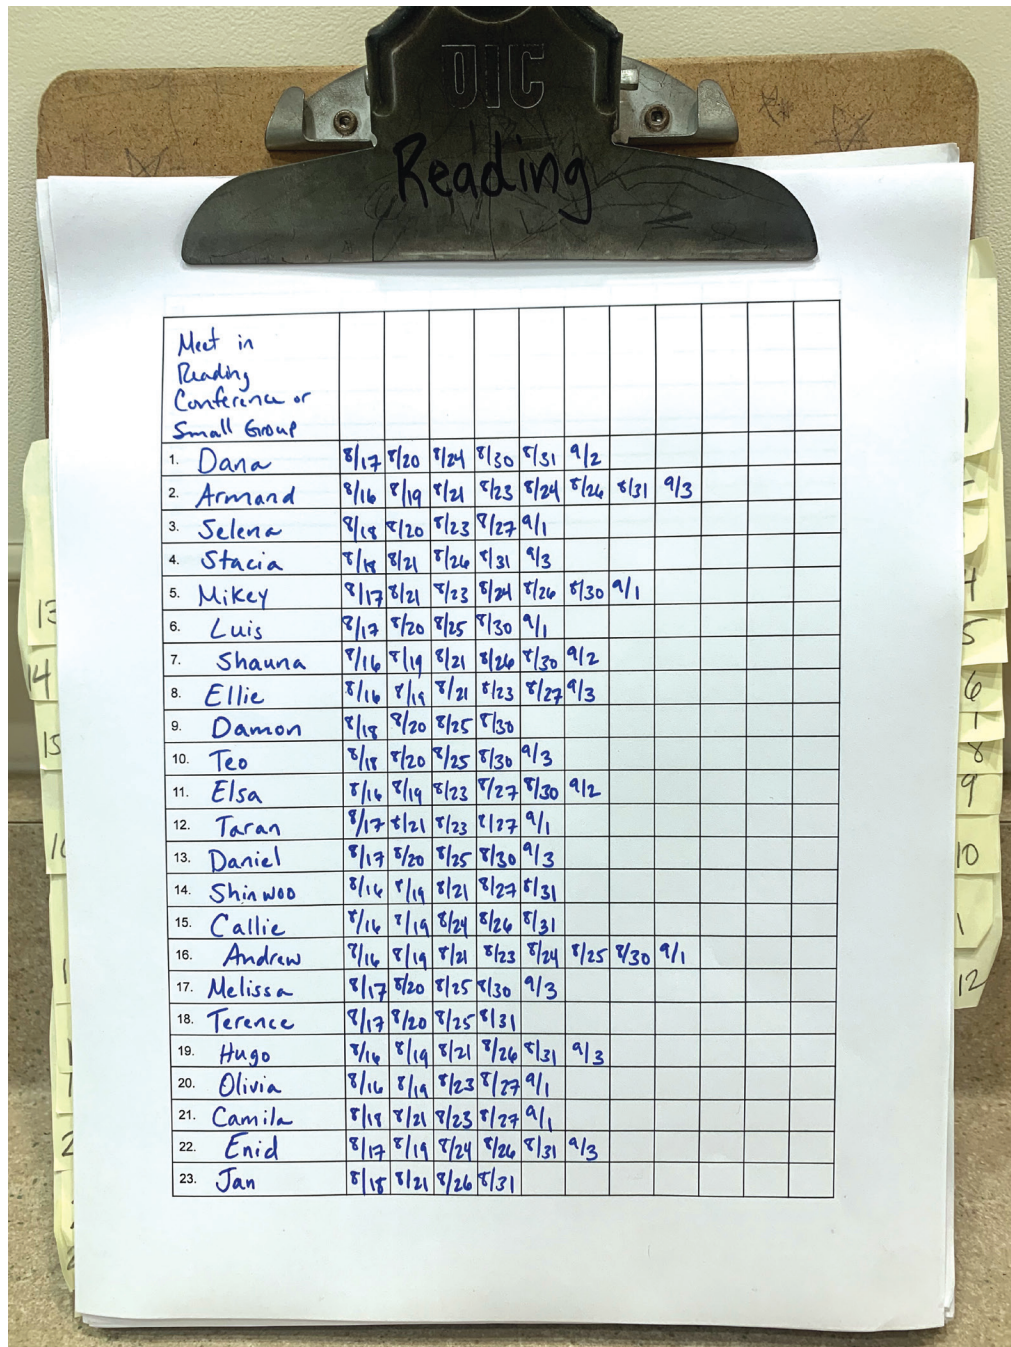 DIC
Reading
Meet in
Reading
Conference or
Small Group
1. Dana 8/17 8/20 8/24 8/30 8/31 9/2
2. Armand 8/16 8/19 8/21 8/23 8/24 8/26 8/31 9/3
3. Selena 8/18 8/20 8/23 8/27 9/1
4. Stacia 8/18 8/21 8/26 8/31 9/3
5. Mikey 8/17 8/21 8/23 8/24 8/26 8/30 9/1
6. Luis 8/17 8/20 8/25 8/30 9/1
7. Shauna 8/16 8/19 8/21 8/26 8/30 9/2
8. Ellie 8/16 8/19 8/21 8/23 8/27 9/3
9. Damon 8/18 8/20 8/25 8/30
10. Teo 8/18 8/20 8/25 8/30 9/3
11. Elsa 8/16 8/19 8/23 8/27 8/30 9/2
12. Taran 8/17 8/21 8/23 8/27 9/1
13. Daniel 8/17 8/20 8/25 8/30 9/3
14. Shinwoo 8/16 8/19 8/21 8/27 8/31
15. Callie 8/16 8/19 8/24 8/26 8/31
16. Andrew 8/16 8/19 8/21 8/23 8/24 8/25 8/30 9/1
17. Melissa 8/17 8/20 8/25 8/30 9/3
18. Terence 8/17 8/20 8/25 8/31
19. Hugo 8/16 8/19 8/21 8/26 8/31 9/3
20. Olivia 8/16 8/19 8/23 8/27 9/1
21. Camila 8/18 8/21 8/23 8/27 9/1
22. Enid 8/17 8/19 8/24 8/26 8/31 9/3
23. Jan 8/18 8/21 8/26 8/31
13
14
15
4
5
6
8
9
10
12